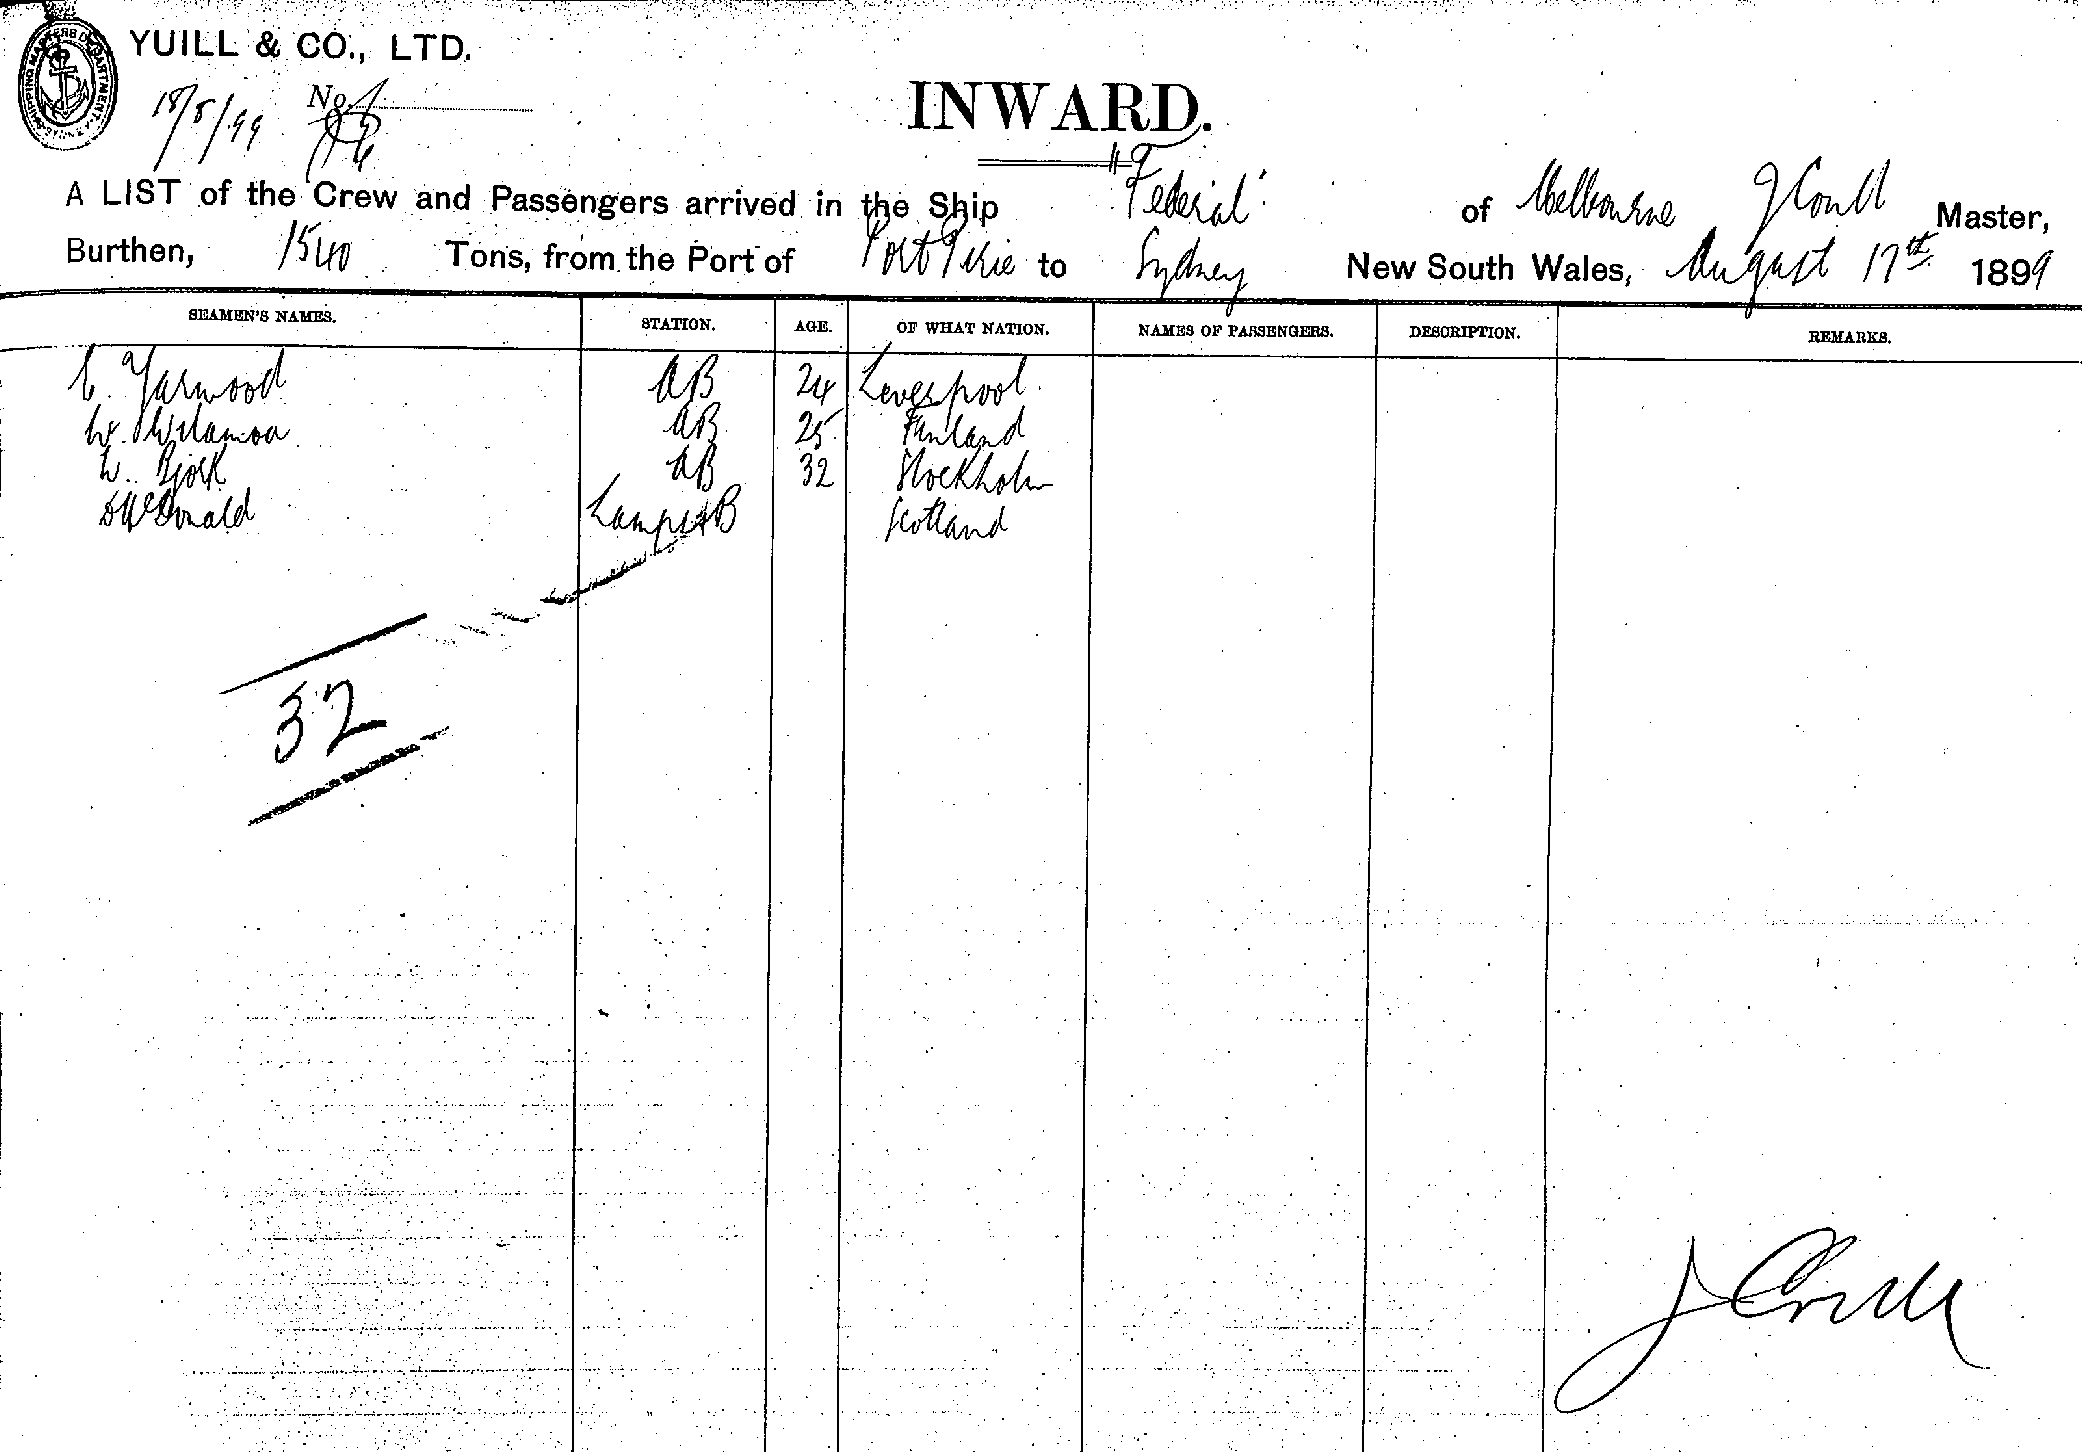 YUILL & CO., LTD.
18/8/99 No.
INWARD.
A LIST of the Crew and Passengers arrived in the Ship "Federal" of Melbourne J Coull Master,
Burthen, 1540 Tons, from the Port of Port Pirie to Sydney New South Wales, August 17th 1899
SEAMEN'S NAMES. STATION. AGE. OF WHAT NATION. NAMES OF PASSENGERS. DESCRIPTION. REMARKS.
C. Yarwood AB 24 Liverpool.
AB 25 Finland
W. Bjork AB 32 Stockholm
D McDonald Lamps AB Scotland
32
J Coull